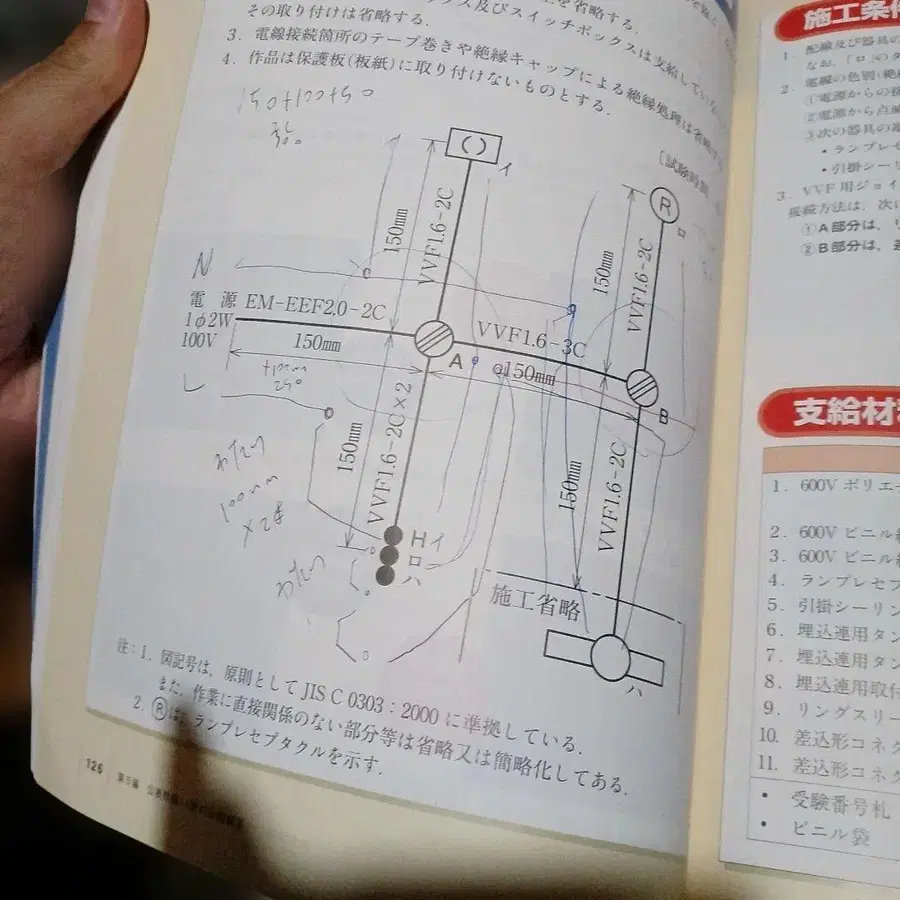 を省略する.
クス及びスイッチボックスは支給してい
その取り付けは省略する.
3. 電線接続箇所のテープ巻きや絶縁キャップによる絶縁処理は省略
4. 作品は保護板(板紙)に取り付けないものとする.
150+100+50
300
〔試験時間
イ
R
ロ
150mm
VVF1.6-2C
150mm
VVF1.6-2C
N
電源 EM-EEF2.0-2C
1φ2W
100V
150mm
A
VVF1.6-3C
150mm
B
L
150mm
VVF1.6-2C×2
150mm
VVF1.6-2C
わたり
100mm
×2本
わたり
H イ
ロ
ハ
施工省略
ハ
注:1. 図記号は,原則として JIS C 0303:2000 に準拠している.
また,作業に直接関係のない部分等は省略又は簡略化してある.
2. Ⓡは,ランプレセプタクルを示す.
126
施工条件
1. 配線及び器具の
なお,「ロ」のタ
2. 電線の色別(絶
①電源からの接
②電源から点滅
③次の器具の端
・ランプレセ
・引掛シーリ
3. VVF用ジョイ
接続方法は,次に
①A部分は,リ
②B部分は,差
支給材
1. 600V ポリエ
2. 600V ビニル
3. 600V ビニル
4. ランプレセプ
5. 引掛シーリン
6. 埋込連用タン
7. 埋込連用タン
8. 埋込連用取付
9. リングスリー
10. 差込形コネク
11. 差込形コネク
・ 受験番号札
・ ビニル袋